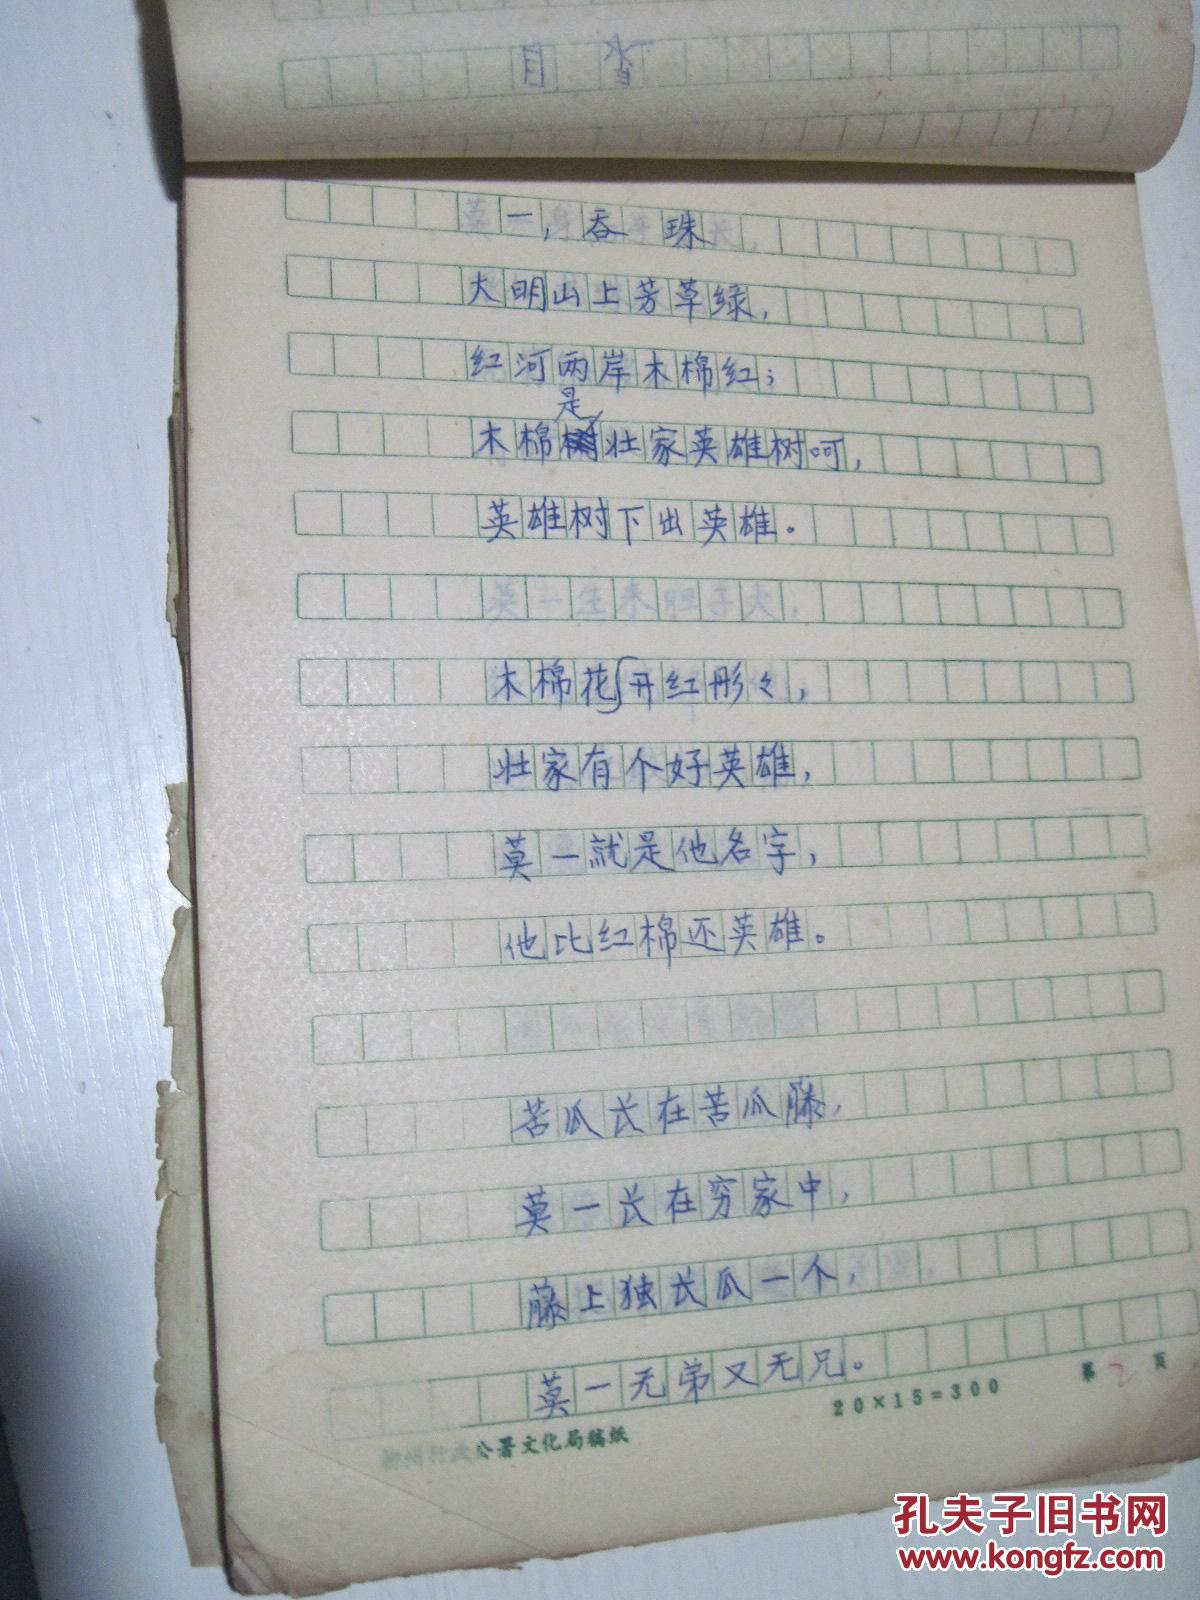 目 录
一, 吞 珠
大明山上芳草绿,
红河两岸木棉红;
木棉是壮家英雄树呵,
英雄树下出英雄。
莫一生来胆子大,
木棉花开红彤々,
壮家有个好英雄,
莫一就是他名字,
他比红棉还英雄。
苦瓜长在苦瓜藤,
莫一长在穷家中,
藤上独长瓜一个,
莫一无弟又无兄。
20×15=300
第 2 页
柳州行政公署文化局稿纸
孔夫子旧书网
www.kongfz.com